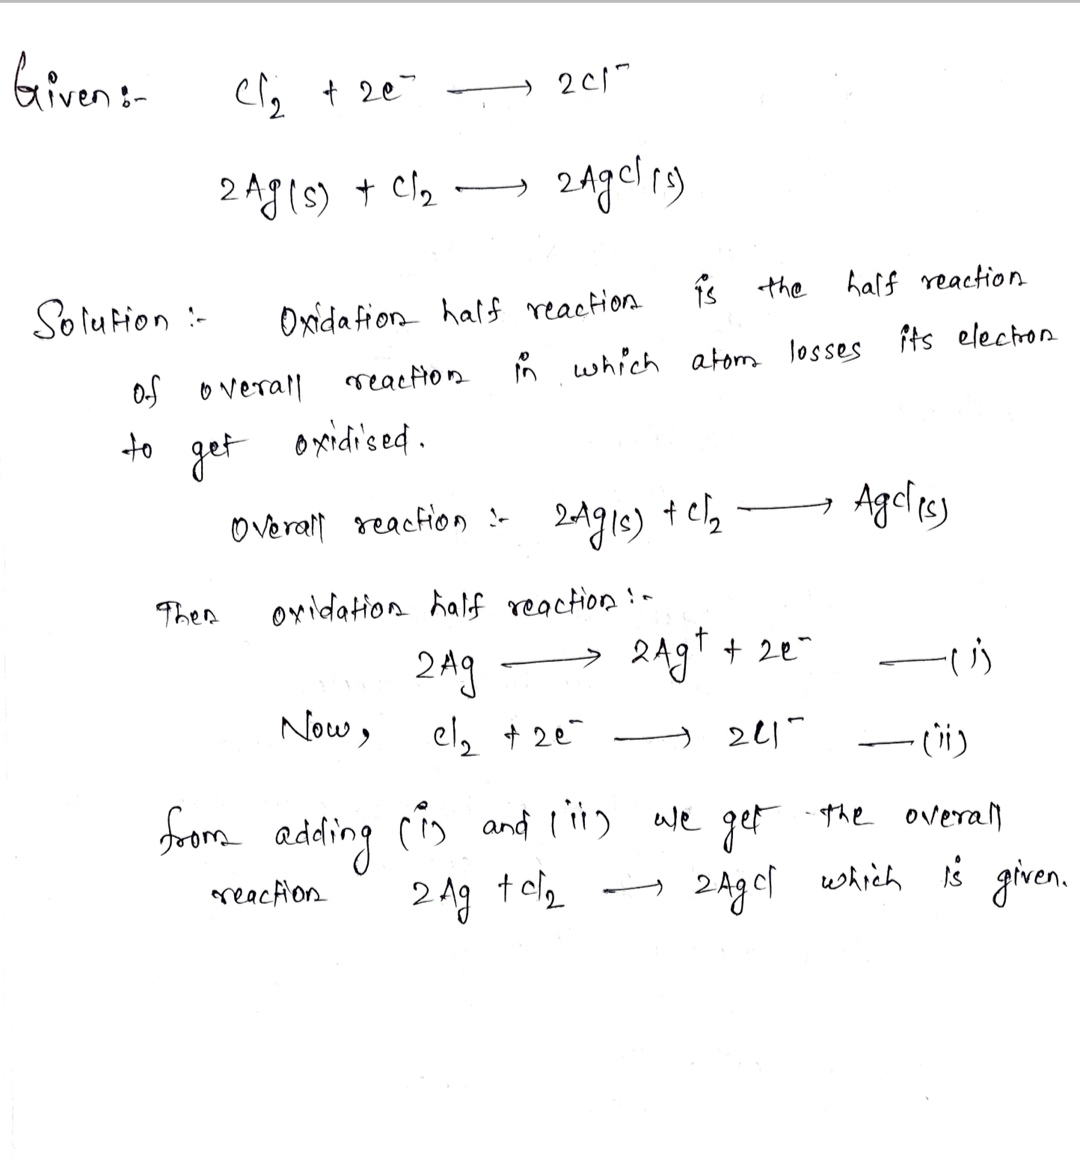 Given :- Cl₂ + 2e⁻ ⟶ 2Cl⁻
2Ag(s) + Cl₂ ⟶ 2AgCl(s)
Solution :- Oxidation half reaction is the half reaction
of overall reaction in which atom losses its electron
to get oxidised.
Overall reaction :- 2Ag(s) + Cl₂ ⟶ AgCl(s)
Then oxidation half reaction :-
2Ag ⟶ 2Ag⁺ + 2e⁻ —(i)
Now, Cl₂ + 2e⁻ ⟶ 2Cl⁻ —(ii)
from adding (i) and (ii) we get the overall
reaction 2Ag + Cl₂ ⟶ 2AgCl which is given.